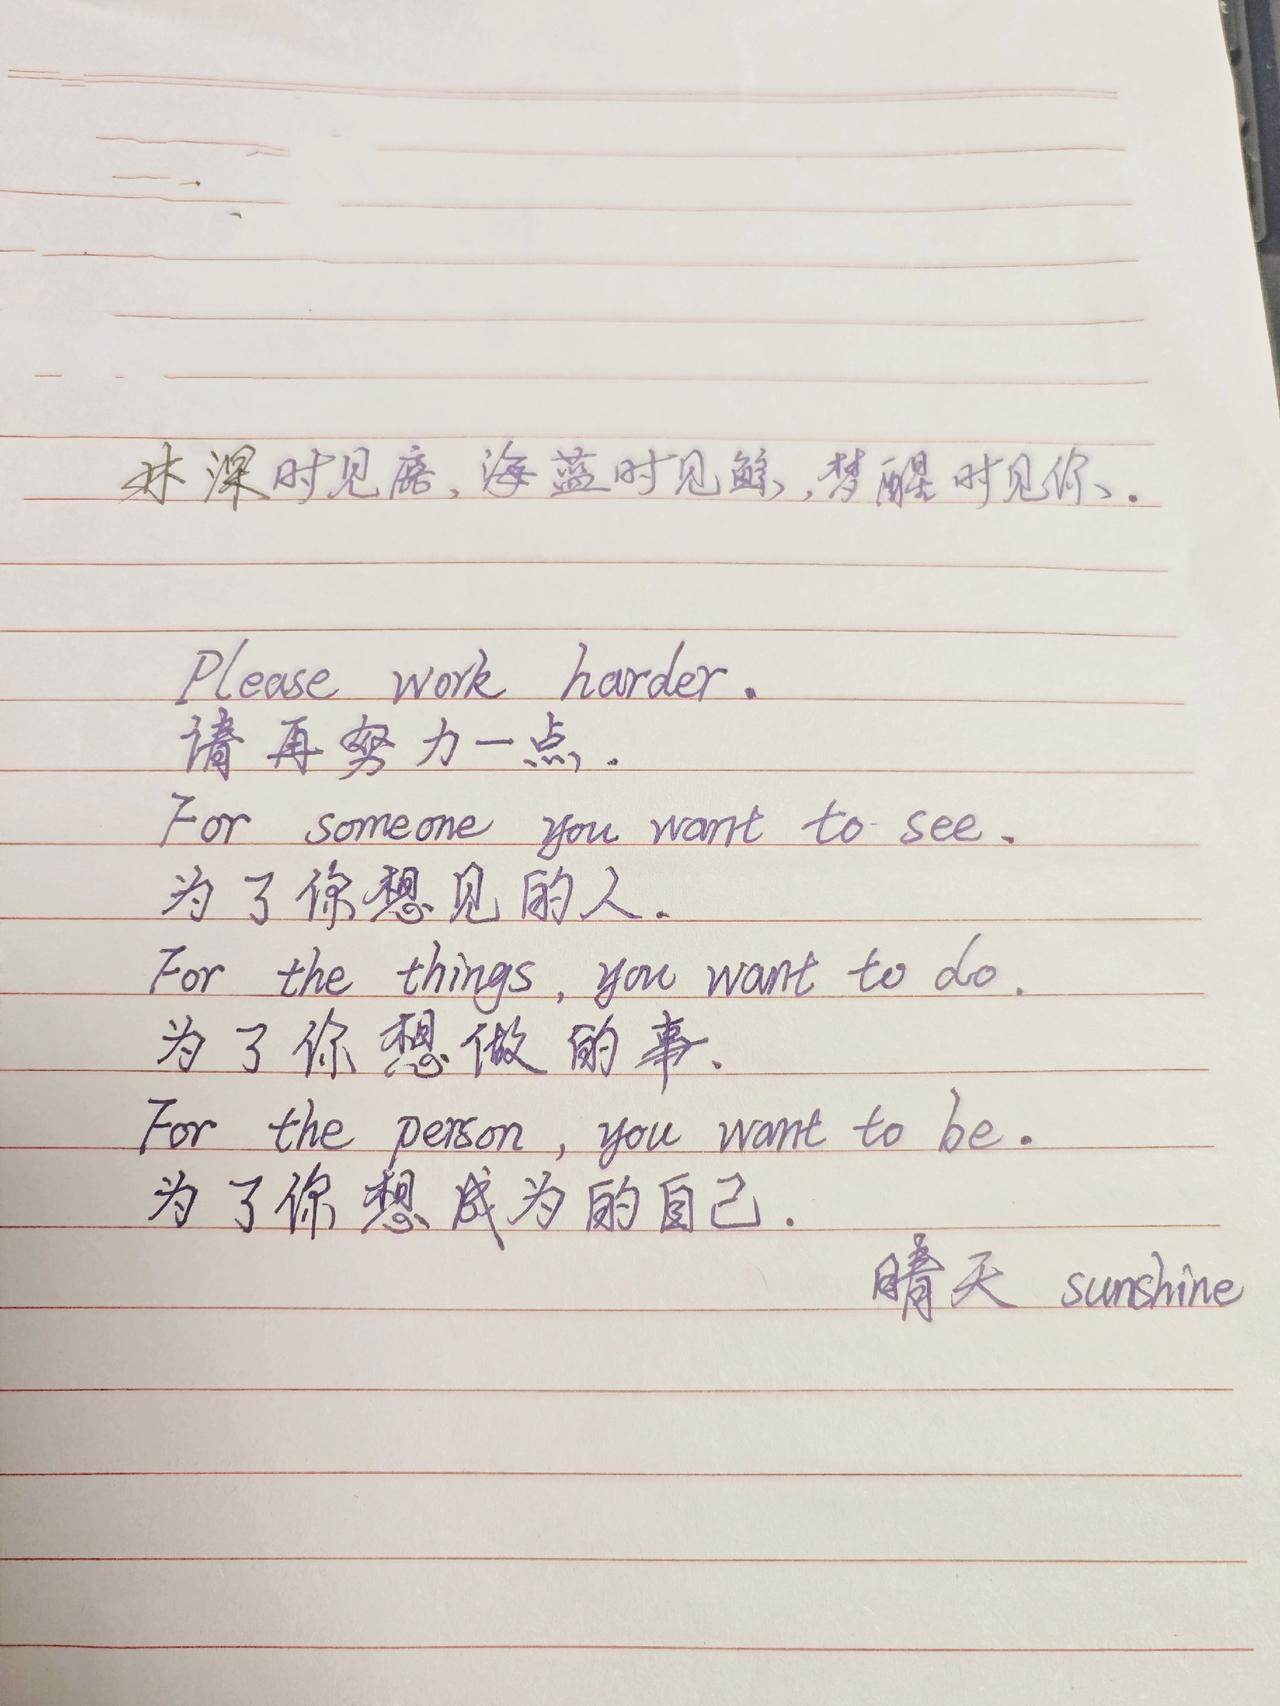 林深时见鹿,海蓝时见鲸,梦醒时见你、.
Please work harder.
请再努力一点.
For someone you want to see.
为了你想见的人.
For the things, you want to do.
为了你想做的事.
For the person, you want to be.
为了你想成为的自己.
晴天 sunshine